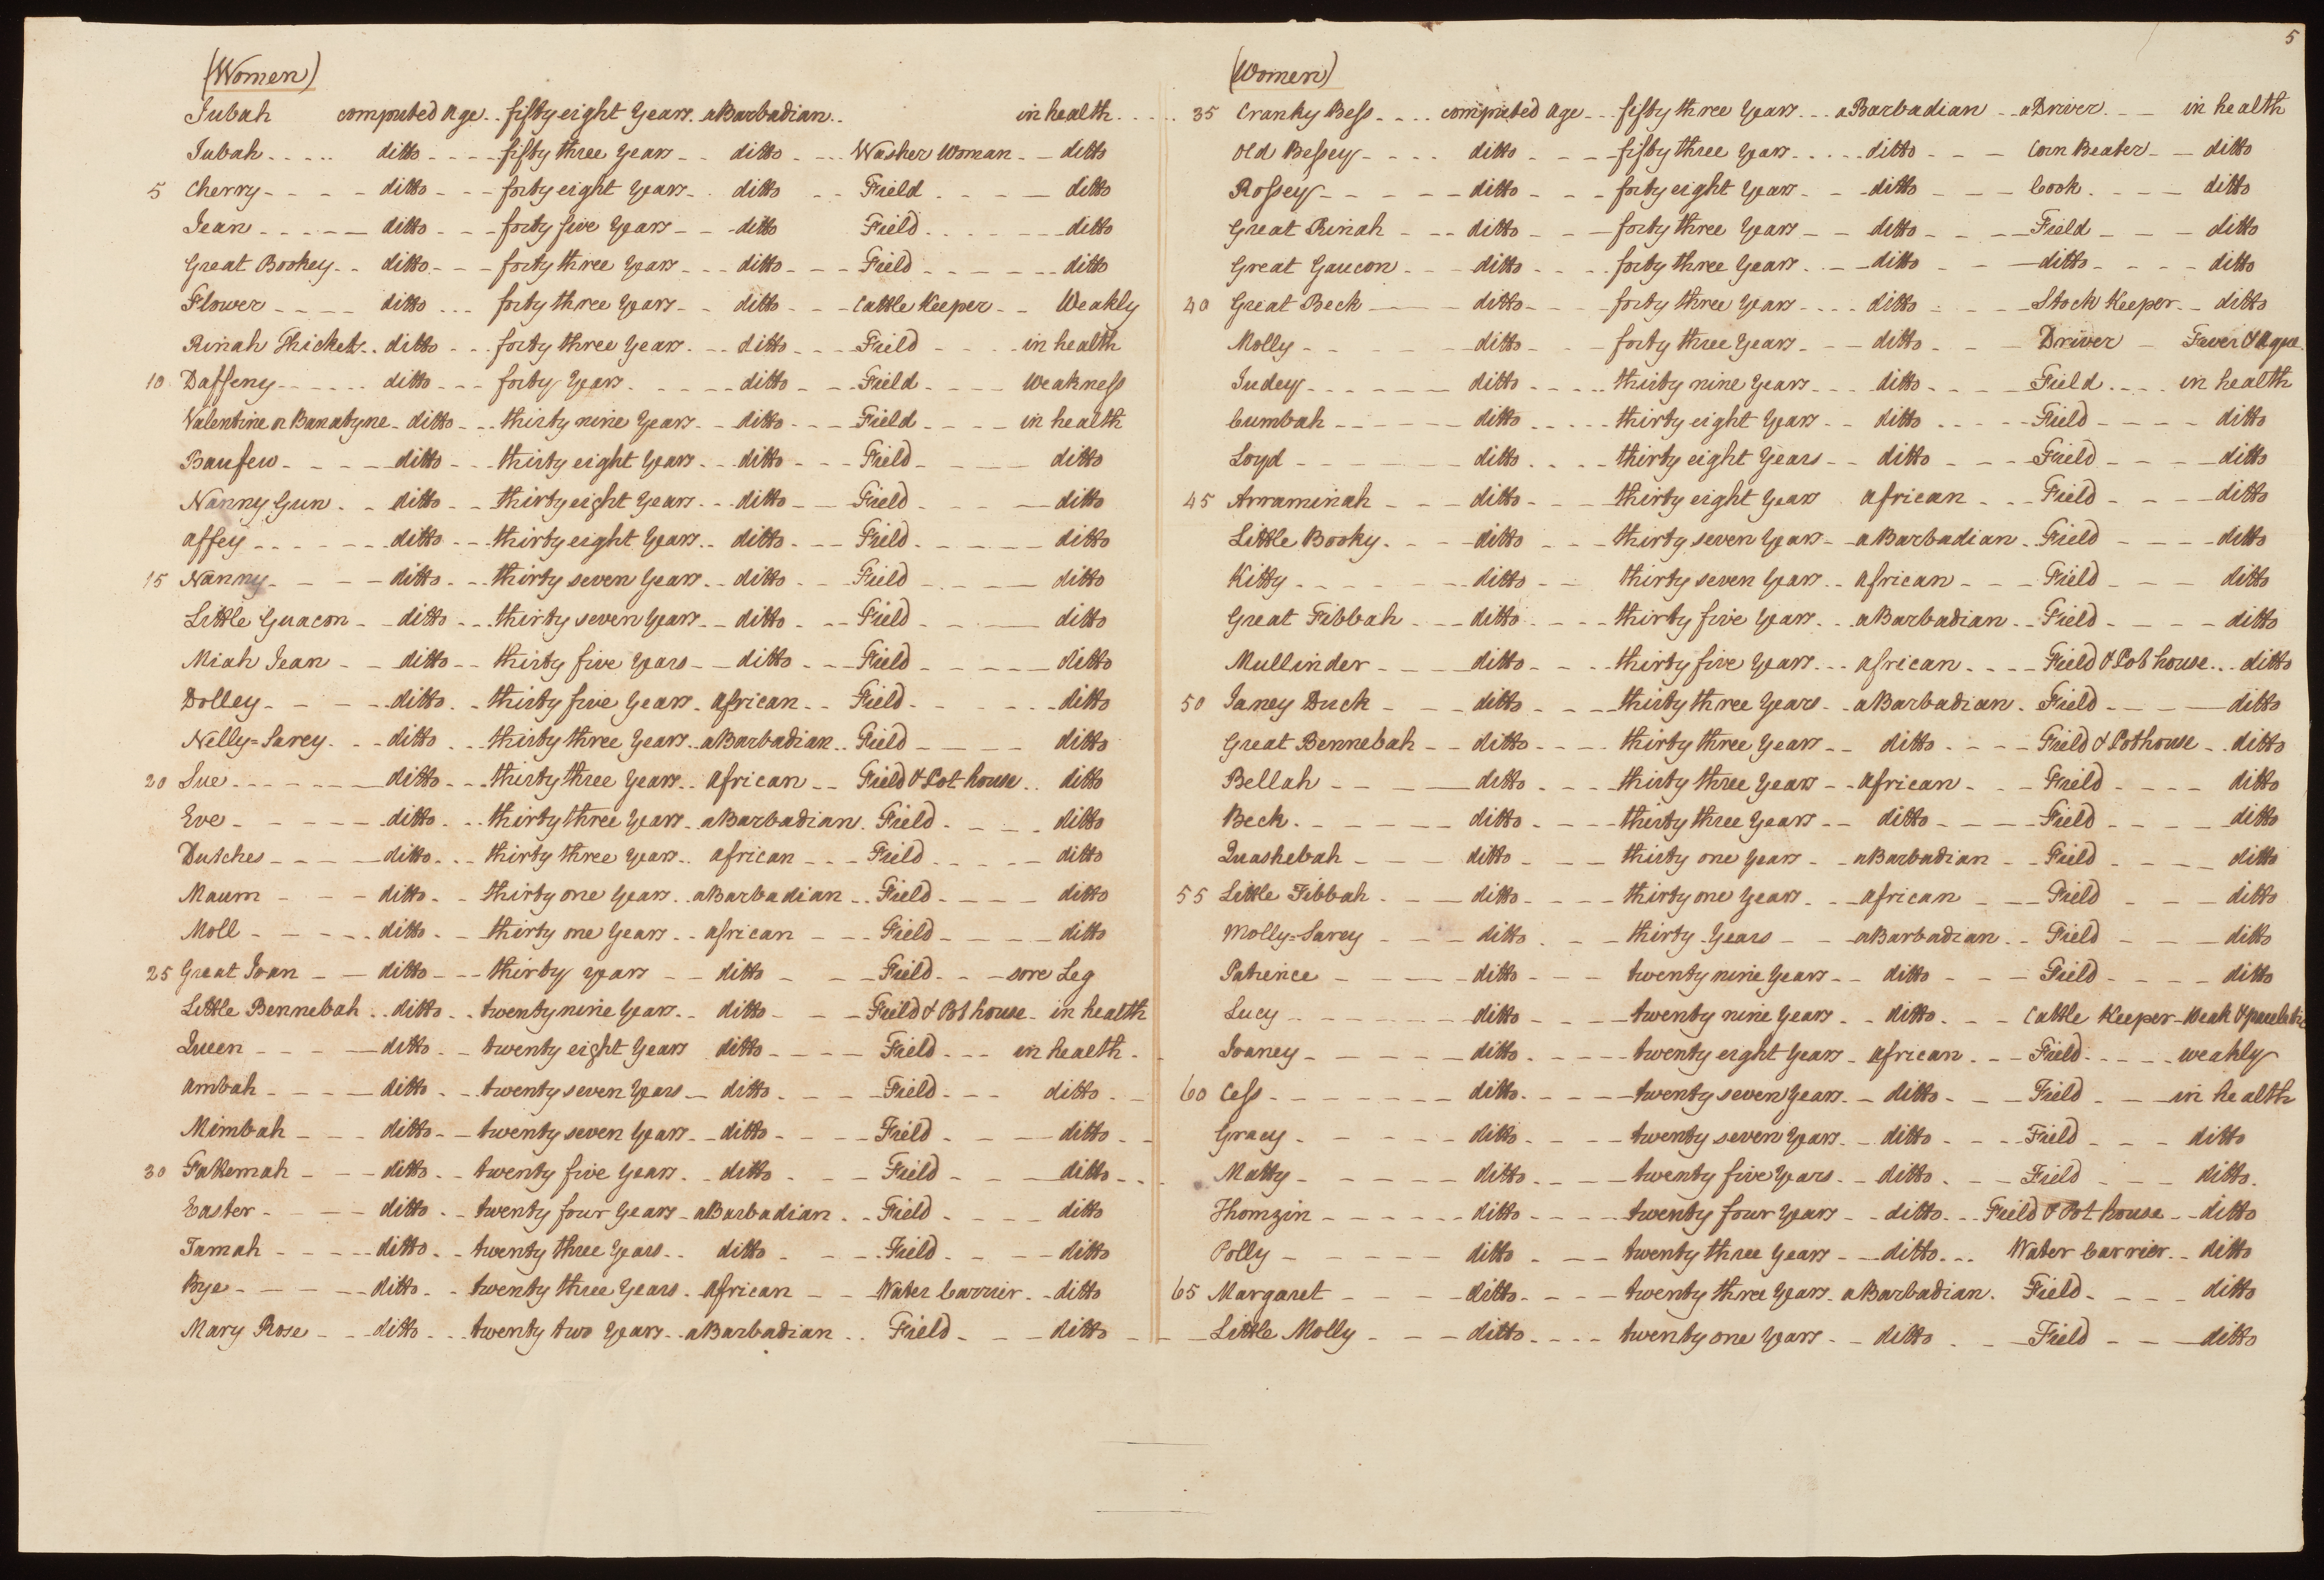 (Women)
Jubah computed Age .. fifty eight Years . aBarbadian .. in health
Jubah ditto fifty three Years ditto Washer Woman ditto
5 Cherry ditto forty eight Years ditto Field ditto
Jean ditto forty five Years ditto Field ditto
Great Bookey ditto forty three Years ditto Field ditto
Flower ditto forty three Years ditto Cattle Keeper Weakly
Rinah Thickets ditto forty three Years ditto Field in health
10 Daffeny ditto forty Years ditto Field Weakness
Valentine or Banatyne ditto thirty nine Years ditto Field in health
Baufew ditto thirty eight Years ditto Field ditto
Nanny Gun ditto thirty eight Years ditto Field ditto
Affey ditto thirty eight Years ditto Field ditto
15 Nanny ditto thirty seven Years ditto Field ditto
Little Guacon ditto thirty seven Years ditto Field ditto
Miah Jean ditto thirty five Years ditto Field ditto
Dolley ditto thirty five Years African Field ditto
Nelly=Sarey ditto thirty three Years aBarbadian Field ditto
20 Sue ditto thirty three Years African Field & Pot house ditto
Eve ditto thirty three Years aBarbadian Field ditto
Dutches ditto thirty three Years african Field ditto
Maum ditto thirty one Years aBarbadian Field ditto
Moll ditto thirty one Years african Field ditto
25 Great Joan ditto thirty years ditto Field sore Leg
Little Bennebah ditto twenty nine Years ditto Field & Pot house in health
Queen ditto twenty eight Years ditto Field in health
Ambah ditto twenty seven Years ditto Field ditto
Mimbah ditto twenty seven Years ditto Field ditto
30 ditto twenty five Years ditto Field ditto
Easter ditto twenty four Years aBarbadian Field ditto
Jamah ditto twenty three Years ditto Field ditto
Bye ditto twenty three Years African Water Carrier ditto
Mary Rose ditto twenty two Years aBarbadian Field ditto
5
(Women)
35 Cranky Bess computed Age fifty three Years aBarbadian aDriver in health
Old Bessey ditto fifty three Years ditto Corn Beater ditto
Rossey ditto forty eight Years ditto Cook ditto
Great Rinah ditto forty three Years ditto Field ditto
Great Gaucon ditto forty three Years ditto ditto ditto
40 Great Beck ditto forty three Years ditto Stock Keeper ditto
Molly ditto forty three Years ditto Driver Fever & Ague
Judey ditto thirty nine Years ditto Field in health
Cumbah ditto thirty eight Years ditto Field ditto
Loyd ditto thirty eight Years ditto Field ditto
45 Arraminah ditto thirty eight Years african Field ditto
Little Booky ditto thirty seven Years aBarbadian Field ditto
Kitty ditto thirty seven Years African Field ditto
Great Fibbah ditto thirty five Years aBarbadian Field ditto
Mullinder ditto thirty five Years african Field & Pot house ditto
50 Janey Duck ditto thirty three Years aBarbadian Field ditto
Great Bennebah ditto thirty three Years ditto Field & Pothouse ditto
Bellah ditto thirty three Years African Field ditto
Beck ditto thirty three Years ditto Field ditto
Quashebah ditto thirty one Years aBarbadian Field ditto
55 Little Fibbah ditto thirty one Years african Field ditto
Molly=Sarey ditto thirty Years aBarbadian Field ditto
Patience ditto twenty nine Years ditto Field ditto
Lucy ditto twenty nine Years ditto Cattle Keeper Weak &
Joaney ditto twenty eight Years African Field weakly
60 Cess ditto twenty seven Years ditto Field in health
Gracy ditto twenty seven Years ditto Field ditto
Matty ditto twenty five Years ditto Field ditto
Thomzin ditto twenty four Years ditto Field & Pot house ditto
Polly ditto twenty three Years ditto Water Carrier ditto
65 Margaret ditto twenty three Years aBarbadian Field ditto
Little Molly ditto twenty one Years ditto Field ditto